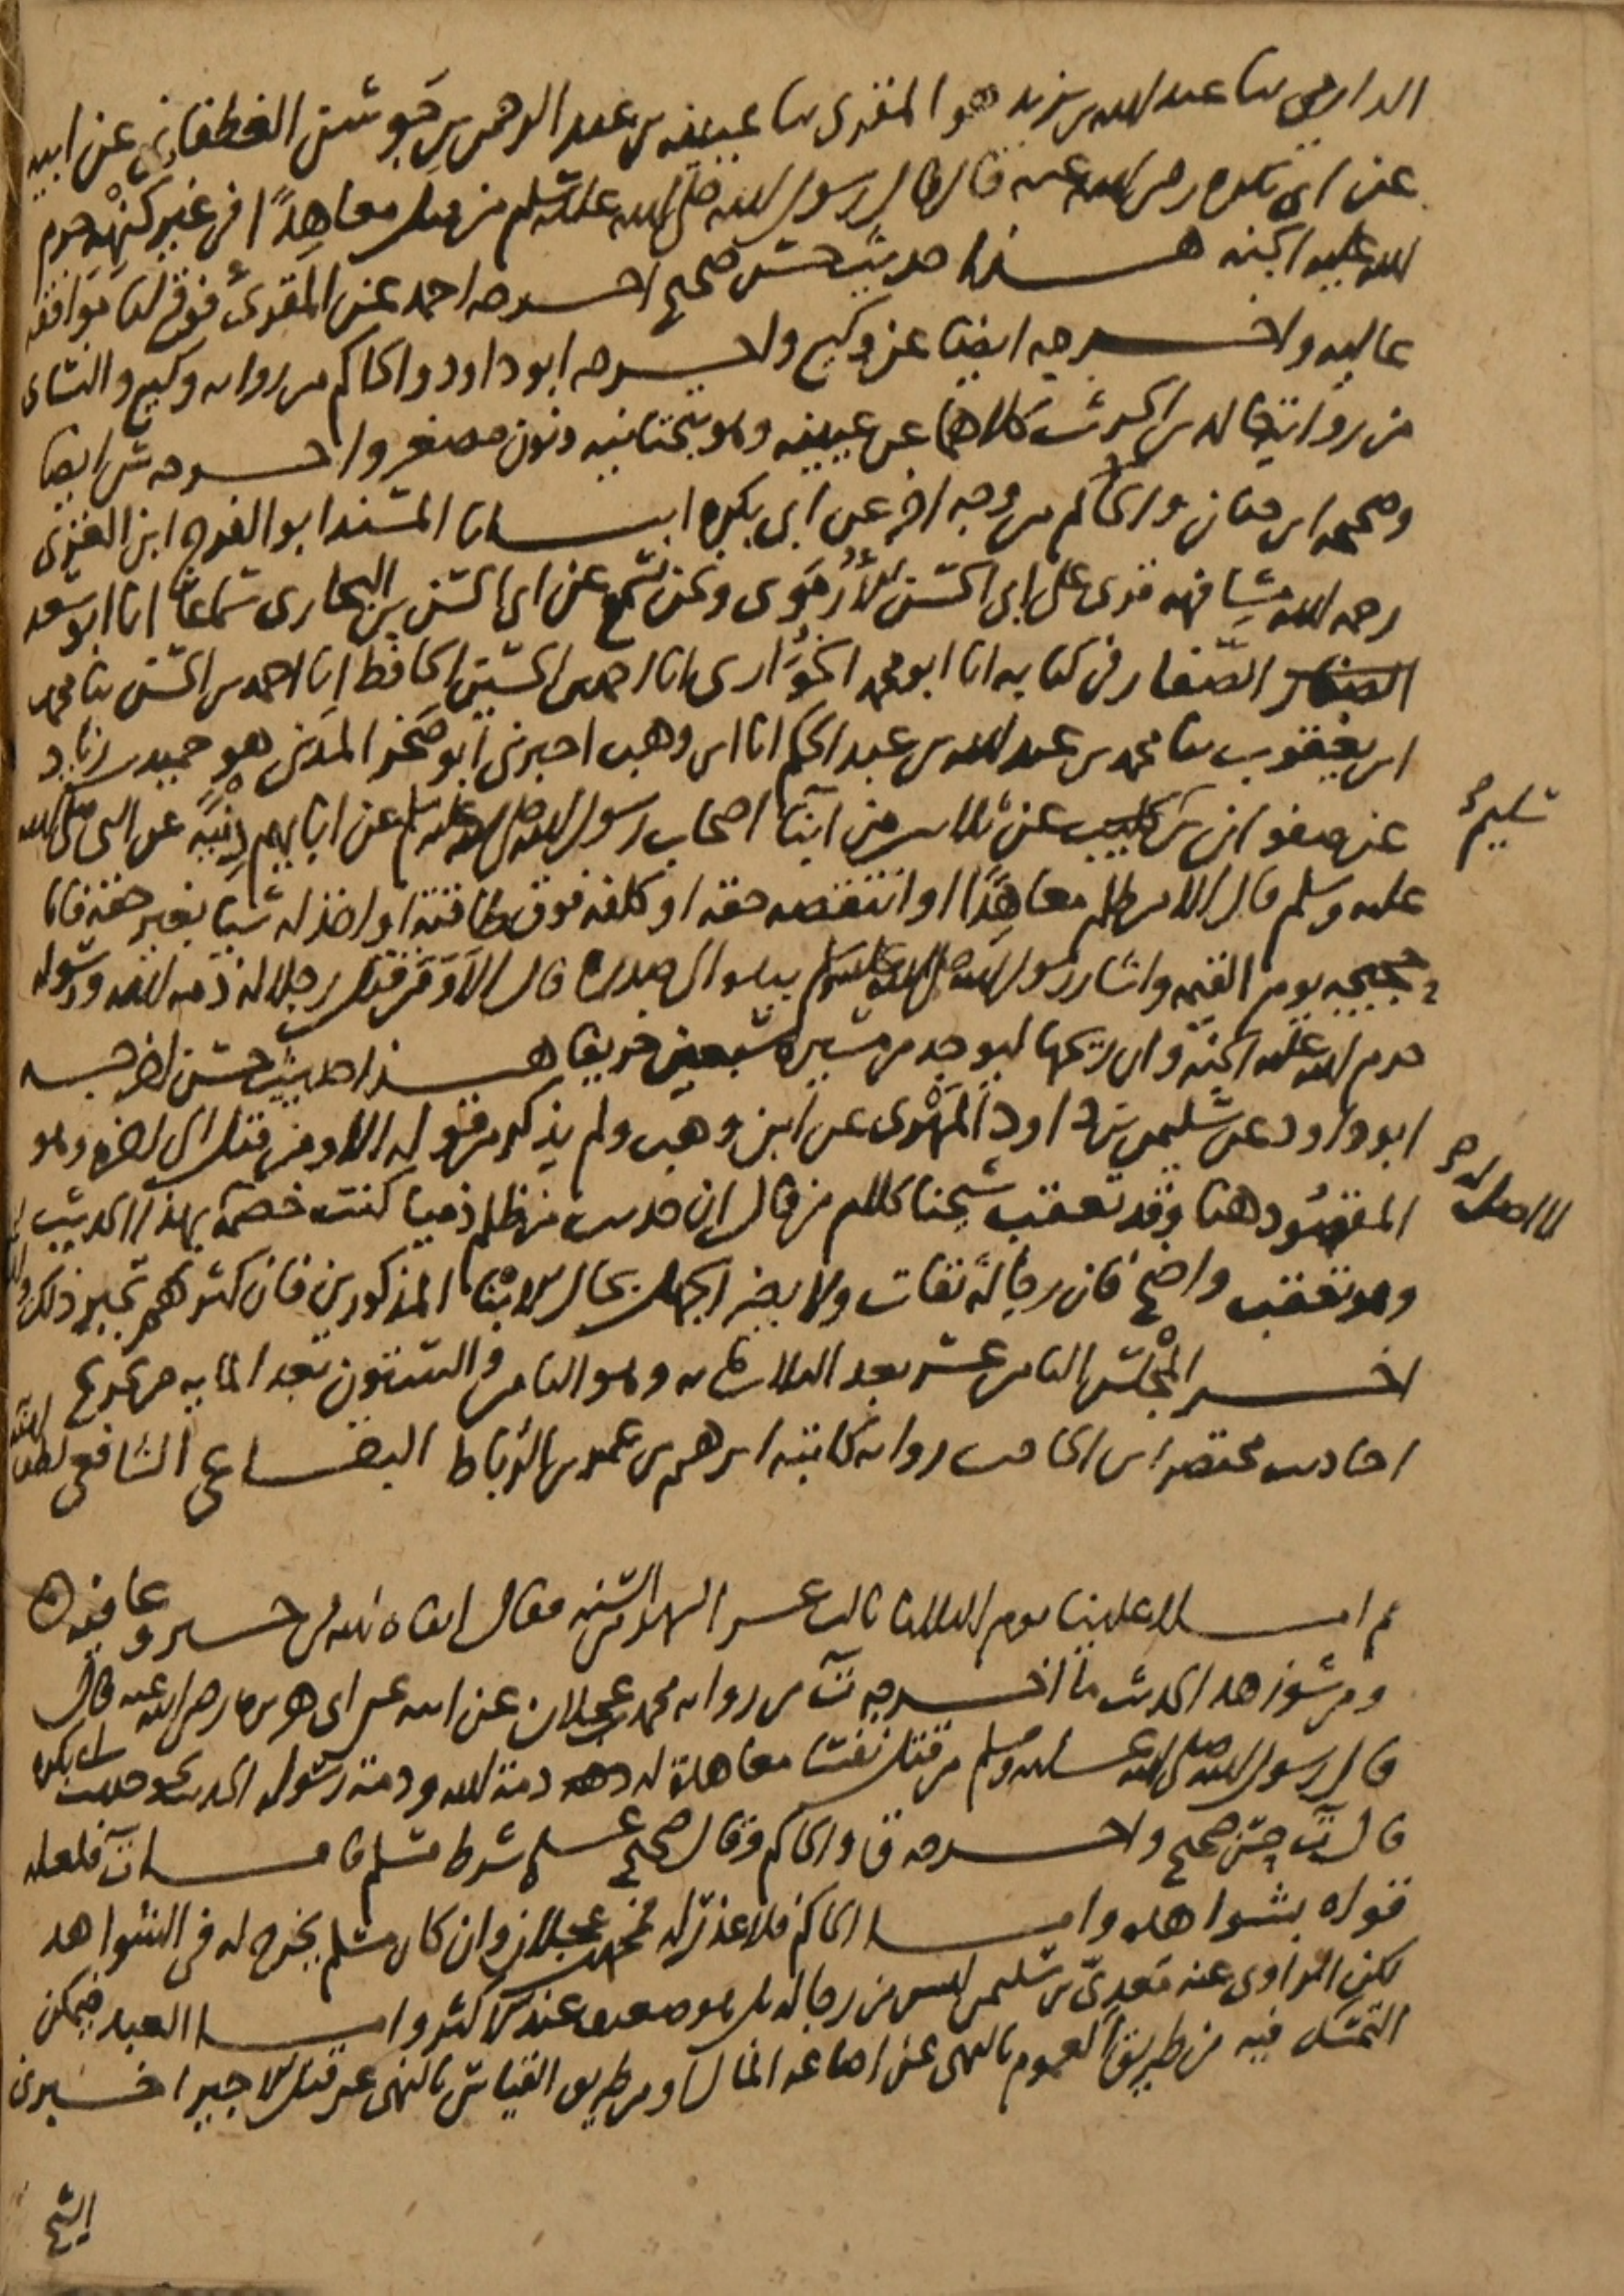 الدارمي ثنا عبد الله بن يزيد هو المقرئ ثنا عيينة بن عبد الرحمن بن جَوشن الغطفاني عن ابيه
عن ابي بكرة رضي الله عنه قال قال رسول الله صلى الله عليه وسلم من قتل معاهِدًا في غير كُنْهِه حرم
الله عليه الجنة هذا حديث حسن صحيح اخرجه احمد عن المقرئ فوقع لنا موافقة
عالية واخرجه ايضا عن وكيع واخرجه ابو داود والحاكم من رواية وكيع والنسائي
من رواية خالد بن الحرث كلاهما عن عيينة وهو بتحتانية ونون مصغر واخرجه س ايضا
وصححه ابن حبان والحاكم من وجه اخر عن ابي بكرة انبانا المسند ابو الفرج ابن الغزي
رحمه الله مشافهة قرئ على ابي الحسن الأُرمَوي ونحن نسمع عن ابي الحسن بن البخاري سماعا انا ابو سعد
الصفار في كتابه انا ابو محمد الخُوَاري انا احمد بن الحسين الحافظ انا احمد بن الحسن ثنا محمد
ابن يعقوب ثنا محمد بن عبد الله بن عبد الحكم انا ابن وهب اخبرني ابو صَخر المدني هو حميد بن زياد
عن صفوان بن سليم عن ثلاثين من ابنا اصحاب رسول الله صلى الله عليه وسلم عن ابايهم دِنْيَة عن النبي صلى الله
عليه وسلم قال الا من ظلم معاهِدًا او انتقصه حقه او كلفه فوق طاقته او اخذ له شيا بغير حقه فانا
حجيجه يوم القيمة واشار رسول الله صلى الله عليه وسلم بيده الى صدره قال الا ومن قتل رجلا له ذمة الله ورسوله
حرم الله عليه الجنة وان ريحها ليوجد من مسيرة سبعين خريفا هذا حديث حسن اخرجه
ابو داود عن سليمن بن داود المَهْري عن ابن وهب ولم يذكر من قوله الا ومن قتل الى اخره وهو
المقصود هنا وقد تعقب شيخنا كلام من قال ان حديث من ظلم ذميا كنت خصمه بهذا الحديث
لا اصل له
وهو تعقب واضح فان رجاله ثقات ولا يضر الجهل بحال الابنا المذكورين فان كثرتهم تجبر ذلك
اخر المجلس الثامن عشر بعد الثلاثمايه وهو الثامن والستون بعد المايه من تخريج
احاديث مختصر ابن الحاجب رواية كاتبه ابرهيم بن عمر بن الرباط البقاعي الشافعي
ثم املا علينا يوم الثلاثا ثالث عشر فقال ابقاه الله في خير وعافية
ومن شواهد هذا الحديث ما اخرجه ت من رواية محمد بن عجلان عن ابيه عن ابي هريرة رضي الله عنه قال
قال رسول الله صلى الله عليه وسلم من قتل نفسا معاهدة له ذمة الله وذمة رسوله الحديث نحو حديث ابي بكرة
قال ت حسن صحيح واخرجه ق والحاكم وقال صحيح على شرط مسلم فاما ت فلعله
قواه بشواهده واما الحاكم فلا عذر له محمد بن عجلان وان كان مسلم يخرج له في الشواهد
لكن الراوي عنه مَعدي بن سليمن ليس من رجاله بل هو ضعيف عند الاكثر واما العبد فيمكن
التمسك فيه من طريق العموم بالنهي عن اضاعة المال ومن طريق القياس بالنهي عن قتل الاجير اخبرني
الشيخ